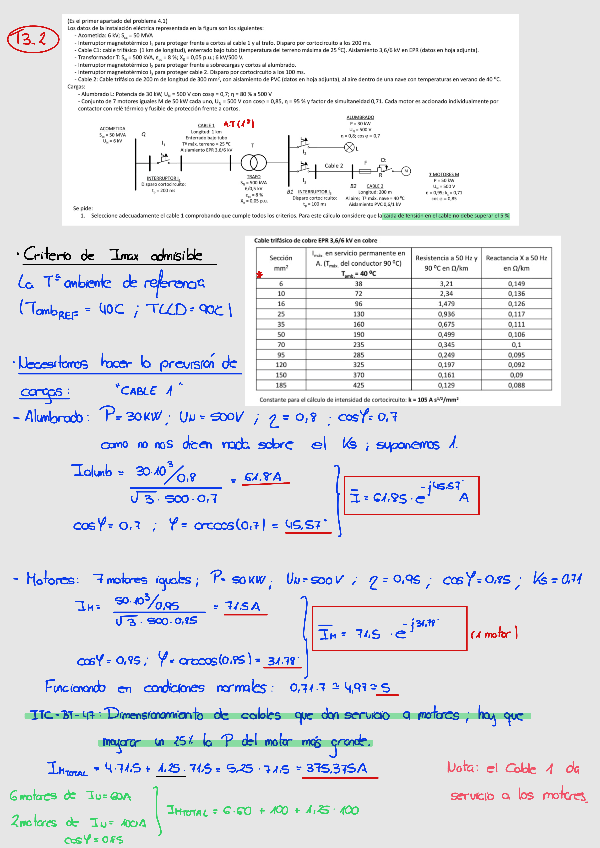 T3.2
(Es el primer apartado del problema 4.1)
Los datos de la instalación eléctrica representada en la figura son los siguientes:
- Acometida: 6 kV; Scc = 50 MVA
- Interruptor magnetotérmico I1 para proteger frente a cortos al cable 1 y al trafo. Disparo por cortocircuito a los 200 ms.
- Cable C1: cable trifásico (1 km de longitud), enterrado bajo tubo (temperatura del terreno máxima de 25 ºC). Aislamiento 3,6/6 kV en EPR (datos en hoja adjunta).
- Transformador T: Sn = 500 kVA, εcc = 8 %; Xd = 0,05 p.u.; 6 kV/500 V.
- Interruptor magnetotérmico I3 para proteger frente a sobrecargas y cortos al alumbrado.
- Interruptor magnetotérmico I2 para proteger cable 2. Disparo por cortocircuito a los 100 ms.
- Cable 2: Cable trifásico de 200 m de longitud de 300 mm², con aislamiento de PVC (datos en hoja adjunta), al aire dentro de una nave con temperaturas en verano de 40 ºC.
Cargas:
- Alumbrado L: Potencia de 30 kW, Un = 500 V con cosφ = 0,7; η = 80 % a 500 V
- Conjunto de 7 motores iguales M de 50 kW cada uno, Un = 500 V con cosφ = 0,85, η = 95 % y factor de simultaneidad 0,71. Cada motor es accionado individualmente por
contactor con relé térmico y fusible de protección frente a cortos.
ACOMETIDA
Scc = 50 MVA
Un = 6 kV
Q
I1
INTERRUPTOR I1
Disparo cortocircuito:
ta = 200 ms
CABLE 1
Longitud: 1 km
Enterrado bajo tubo
Tª máx. terreno = 25 ºC
Aislamiento EPR 3,6/6 kV
A.T (1ª)
T
TRAFO
Sn = 500 kVA
6/0,5 kV
εcc = 8 %
Xd = 0,05 p.u.
I3
L
ALUMBRADO
P = 30 kW
Un = 500 V
η = 0,8; cos φ = 0,7
I2
B1
INTERRUPTOR I2
Disparo cortocircuito:
ta = 100 ms
Cable 2
B2
F
Ct
R
M
CABLE 2
Longitud: 200 m
Al aire; Tª máx. nave = 40 ºC
Aislamiento PVC 0,6/1 kV
7 MOTORES M
P = 50 kW
Un = 500 V
η = 0,95; Ks = 0,71
cos φ = 0,85
Se pide:
1. Seleccione adecuadamente el cable 1 comprobando que cumple todos los criterios. Para este cálculo considere que la caída de tensión en el cable no debe superar el 5 %
· Criterio de Imax admisible
La Tª ambiente de referencia
(TambREF = 40C ; TLLD = 90C)
Cable trifásico de cobre EPR 3,6/6 kV en cobre
Sección mm² | Imáx en servicio permanente en A. (Tmáx del conductor 90 ºC) Tamb = 40 ºC | Resistencia a 50 Hz y 90 ºC en Ω/km | Reactancia X a 50 Hz en Ω/km
6 38 3,21 0,149
10 72 2,34 0,136
16 96 1,479 0,126
25 130 0,936 0,117
35 160 0,675 0,111
50 190 0,499 0,106
70 235 0,345 0,1
95 285 0,249 0,095
120 325 0,197 0,092
150 370 0,161 0,09
185 425 0,129 0,088
Constante para el cálculo de intensidad de cortocircuito: k = 105 A s¹/²/mm²
· Necesitamos hacer la previsión de
cargas: "CABLE 1"
- Alumbrado: P = 30KW ; UN = 500V ; η = 0,8 ; cosφ = 0.7
como no nos dicen nada sobre el Ks ; suponemos 1.
Ialumb = 30·10³/0,8 / √3 · 500 · 0,7 = 61.8A
I = 61,85 · e^-j45.57° A
cosφ = 0,7 ; φ = arccos(0,7) = 45,57°
- Motores: 7 motores iguales ; P = 50KW ; UN = 500V ; η = 0,95 ; cosφ = 0,85 ; Ks = 0,71
IM = 50·10³/0,95 / √3 · 500 · 0,85 = 71.5A
IM = 71,5 · e^-j31,78° (1 motor)
cosφ = 0,85 ; φ = arccos(0,85) = 31.78°
Funcionando en condiciones normales: 0,71·7 = 4,97 ≃ 5
ITC-BT-47: Dimensionamiento de cables que dan servicio a motores ; hay que
mayorar un 25% la P del motor más grande.
IMTOTAL = 4·71.5 + 1.25 · 71.5 = 5,25 · 71.5 = 375,375A
Nota: el Cable 1 da
servicio a los motores.
6 motores de IN = 60A
2 motores de IN = 100A
cosφ = 0.85
IMTOTAL = 6·60 + 100 + 1.25 · 100